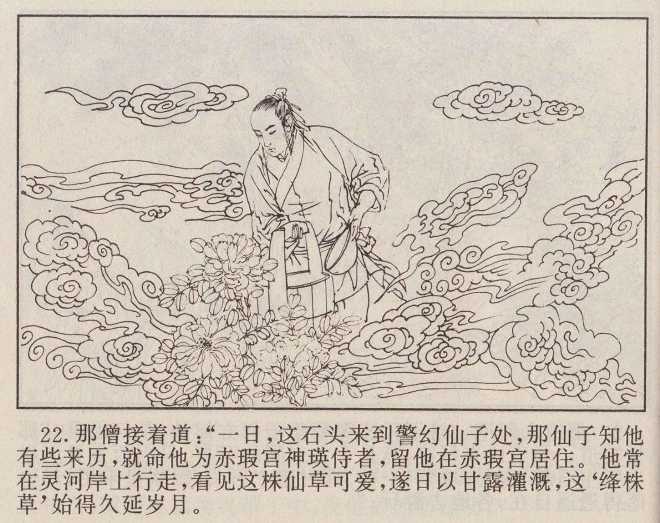 22. 那僧接着道：“一日，这石头来到警幻仙子处，那仙子知他
有些来历，就命他为赤瑕宫神瑛侍者，留他在赤瑕宫居住。他常
在灵河岸上行走，看见这株仙草可爱，遂日以甘露灌溉，这‘绛株
草’始得久延岁月。